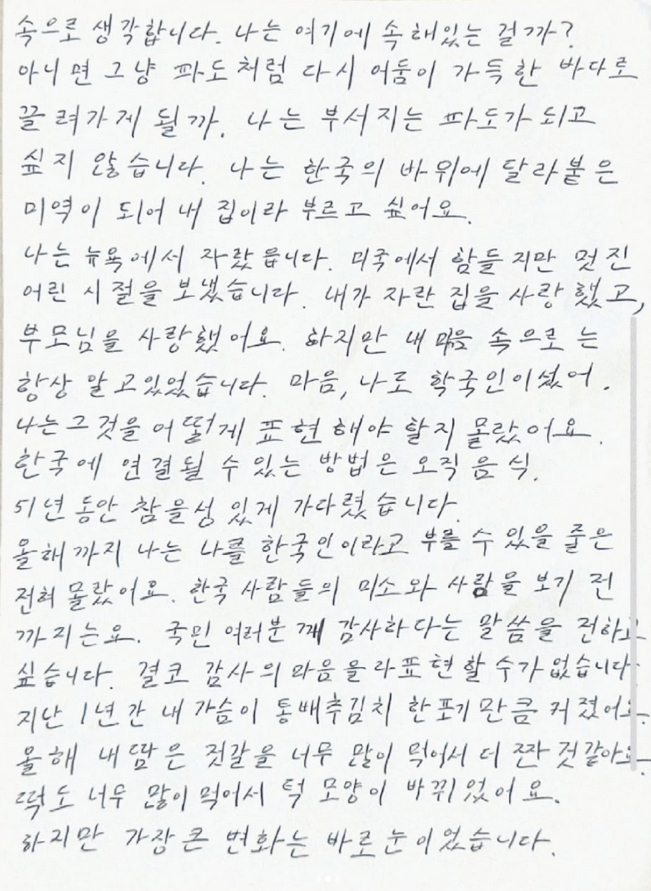 속으로 생각합니다. 나는 여기에 속해있는 걸까?
아니면 그냥 파도처럼 다시 어둠이 가득한 바다로
끌려가게 될까. 나는 부서지는 파도가 되고
싶지 않습니다. 나는 한국의 바위에 달라붙은
미역이 되어 내 집이라 부르고 싶어요.
나는 뉴욕에서 자랐읍니다. 미국에서 함들지만 멋진
어린 시절을 보냈습니다. 내가 자란 집을 사랑했고,
부모님을 사랑했어요. 하지만 내 마음 속으로는
항상 알고있었습니다. 마음, 나로 확국인이셨어.
나는 그것을 어떻게 표현해야 할지 몰랐어요.
한국에 연결될 수 있는 방법은 오직 음식.
51년 동안 참을성 있게 가다렸습니다.
올해까지 나는 나를 한국인이라고 부를 수 있을 줄은
전혀 몰랐어요. 한국 사람들의 미소와 사랑을 보기 전
까지는요. 국민 여러분께 감사하다는 말씀을 전하고
싶습니다. 결코 감사의 마음을 라표현할 수가 없습니다.
지난 1년간 내 가슴이 통배추김치 한포기만큼 커졌어요.
올해 내 땀은 젓갈을 너무 많이 먹어서 더 짠 것같아요.
떡도 너무 많이 먹어서 턱 모양이 바뀌었어요.
하지만 가장 큰 변화는 바로 눈이었습니다.